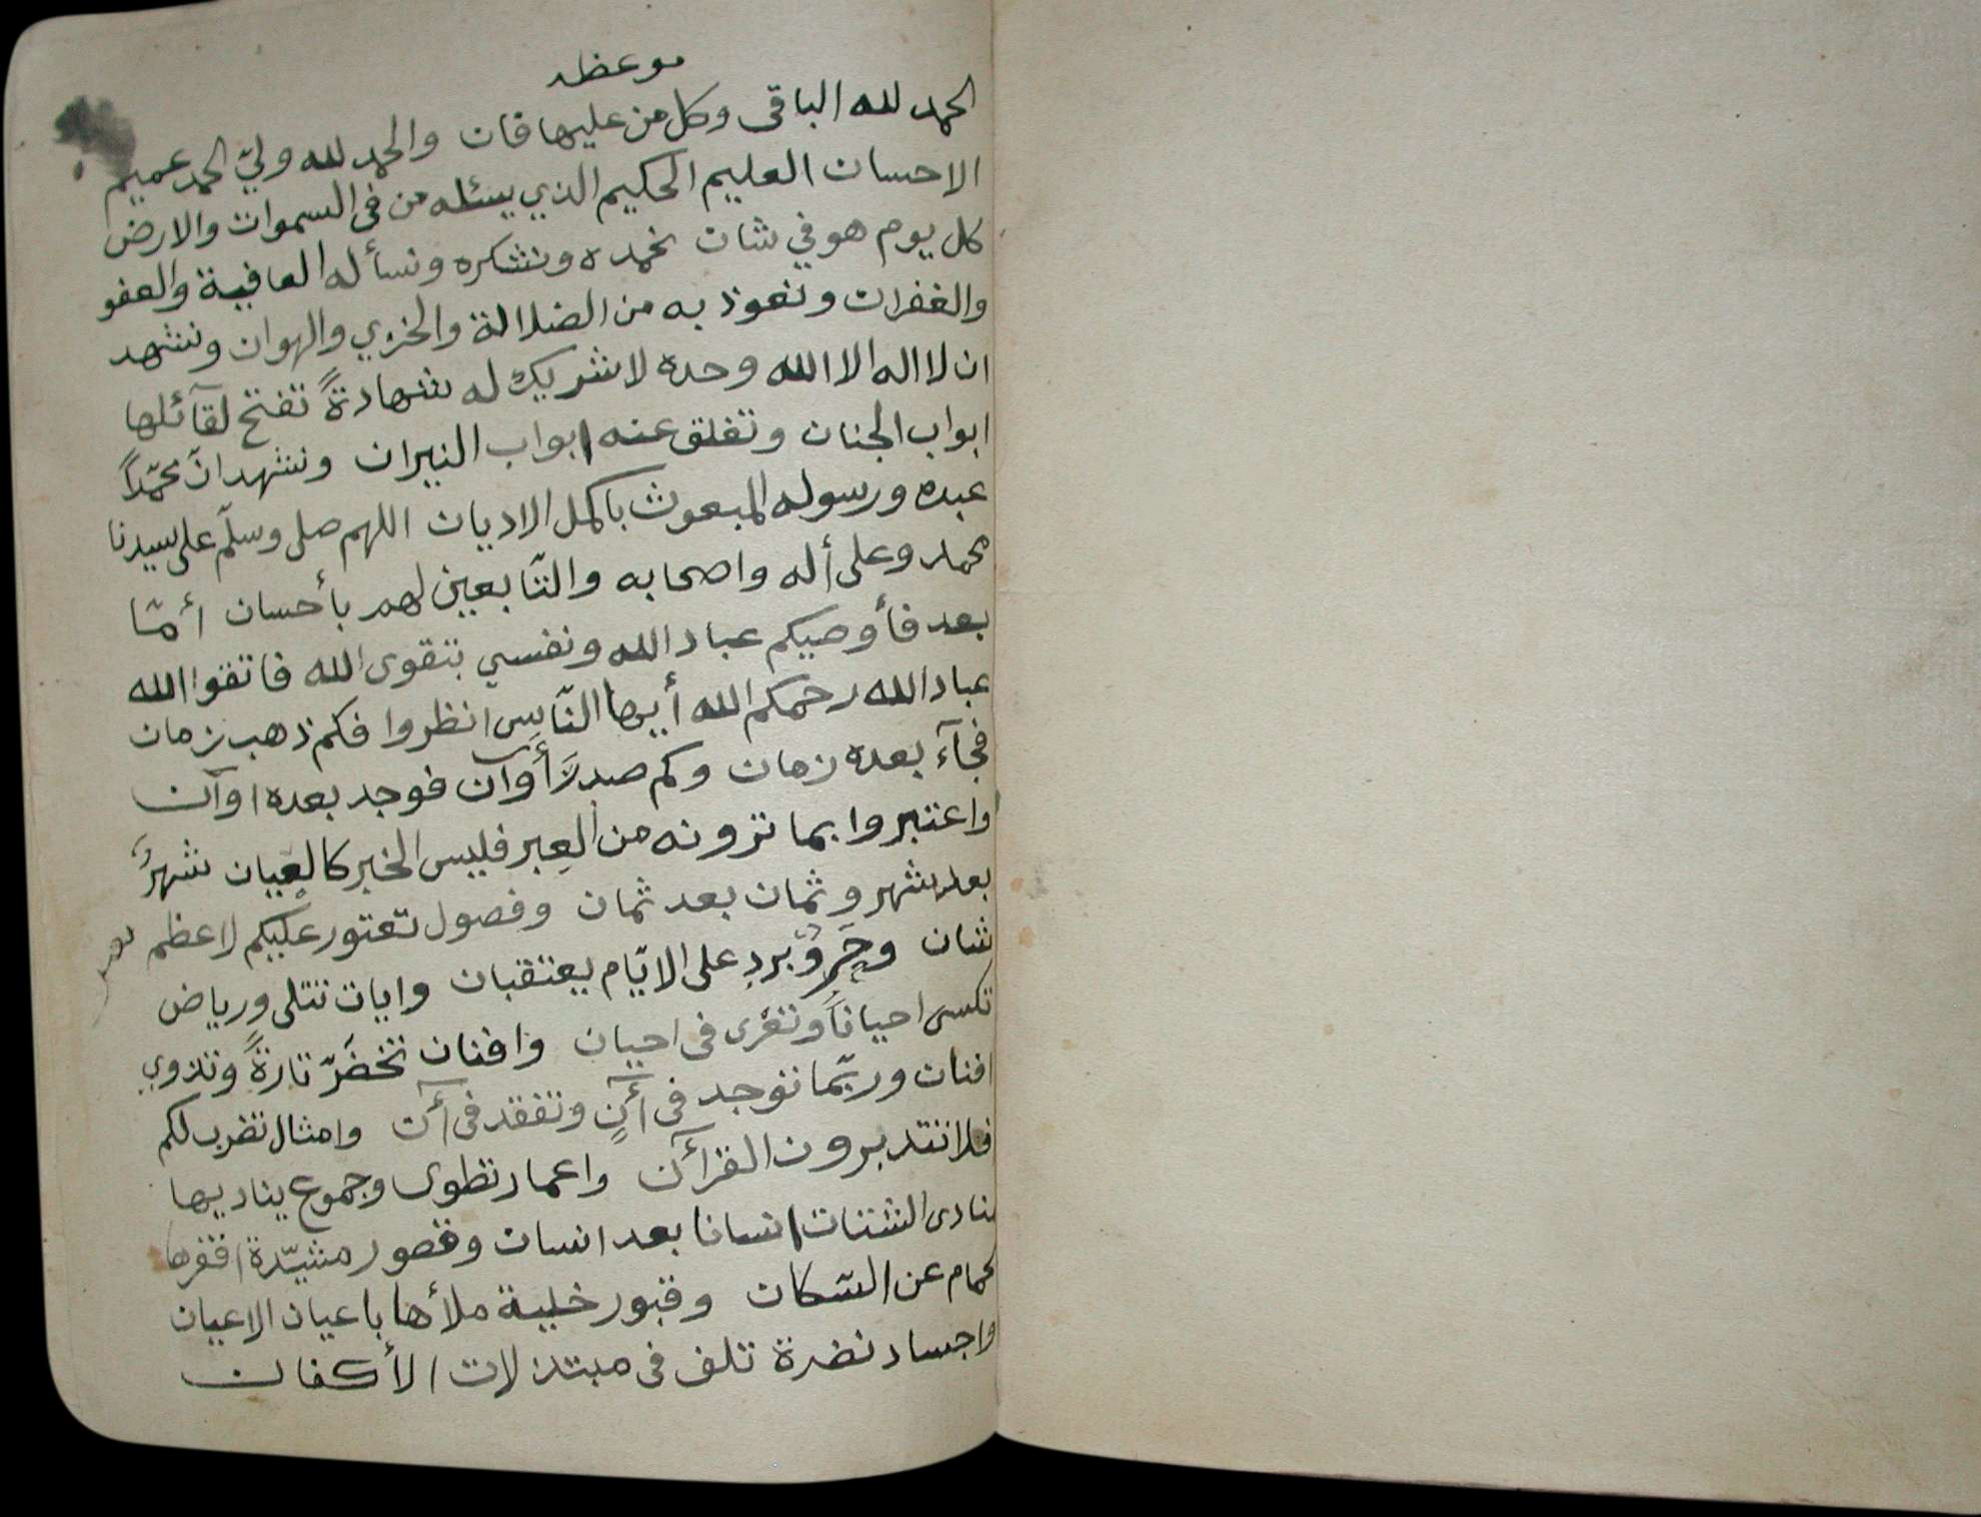 موعظه
الحمد لله الباقى وكل من عليها فان والحمد لله وليّ الحمد عميم
الاحسان العليم الحكيم الذي يسئله من فى السموات والارض
كل يوم هو في شان نحمده ونشكره ونسأله العافية والعفو
والغفران ونعوذ به من الضلالة والخزي والهوان ونشهد
ان لا اله الا الله وحده لا شريك له شهادةً تفتح لقآئلها
ابواب الجنان وتغلق عنه ابواب النيران ونشهد انّ محمّداً
عبده ورسوله المبعوث باكمل الاديان اللهم صلى وسلّم على سيدنا
محمد وعلى أله واصحابه والتّابعين لهم بأحسان أمّا
بعد فأوصيكم عباد الله ونفسي بتقوى الله فاتقوا الله
عباد الله رحمكم الله أيها النّاس انظروا فكم ذهب زمان
فجآء بعده زمان وكم صدرَ أوآن فوجد بعده اوآن
واعتبروا بما ترونه من العِبر فليس الخبر كالعِيان شهرٌ
بعد شهر وثمان بعد ثمان وفصول تعتور عليكم لاعظم
شان وحَرٍ وبردٍ على الايّام يعتقبان وايات تتلى ورياض
تكسى احياناً وتعْرى فى احيان وافنان تخضَرّ تارةً وتذوي
افنان وربّما توجد فى أنٍ وتفقد فى أن وامثال تضرب لكم
افلا تتدبرون القرأن واعمار تطوى وجموع يناديها
منادى الشتات انسانا بعد انسان وقصور مشيّدة اقفرها
الحمام عن السّكان وقبور خلية ملأها باعيان الاعيان
واجساد نضرة تلف فى مبتذلات الأكفان